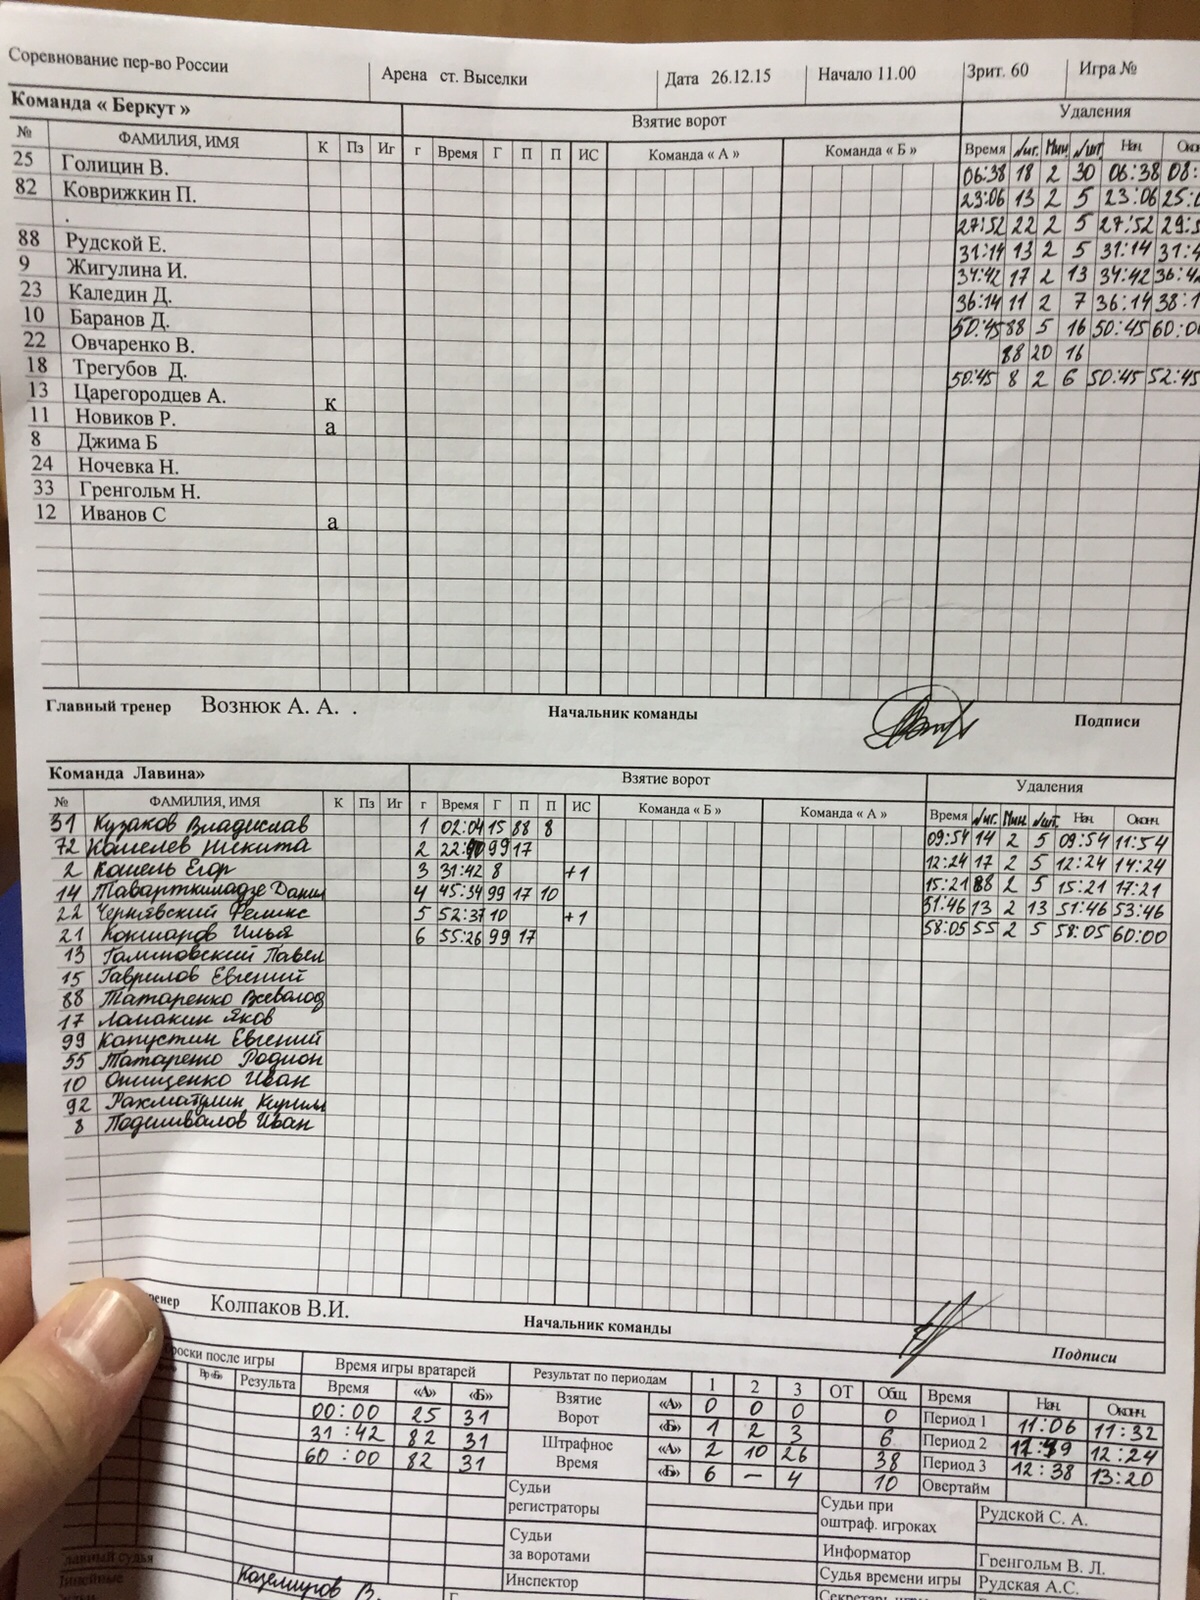 Соревнование пер-во России Арена ст. Выселки Дата 26.12.15 Начало 11.00 Зрит. 60 Игра №
Команда « Беркут » Взятие ворот Удаления
№ ФАМИЛИЯ, ИМЯ К Пз Иг г Время Г П П ИС Команда « А » Команда « Б » Время №иг. Мин. №шт. Нач.
25 Голицин В. 06:38 18 2 30 06:38 08:
82 Коврижкин П. 23:06 13 2 5 23:06 25:0
. 27:52 22 2 5 27:52 29:5
88 Рудской Е. 31:14 13 2 5 31:14 31:4
9 Жигулина И. 34:42 17 2 13 34:42 36:42
23 Каледин Д. 36:14 11 2 7 36:14 38:1
10 Баранов Д. 50:45 88 5 16 50:45 60:00
22 Овчаренко В. 88 20 16
18 Трегубов Д. 50:45 8 2 6 50:45 52:45
13 Царегородцев А. к
11 Новиков Р. а
8 Джима Б
24 Ночевка Н.
33 Гренгольм Н.
12 Иванов С а
Главный тренер Вознюк А. А. . Начальник команды Подписи
Команда Лавина» Взятие ворот Удаления
№ ФАМИЛИЯ, ИМЯ К Пз Иг г Время Г П П ИС Команда « Б » Команда « А » Время №иг. Мин. №шт. Нач. Оконч.
31 Кузаков Владислав 1 02:04 15 88 8 09:54 14 2 5 09:54 11:54
72 Кошелев Никита 2 99 17 12:24 17 2 5 12:24 14:24
2 Кошель Егор 3 31:42 8 +1 15:21 88 2 5 15:21 17:21
14 Таварткиладзе Данил 4 45:34 99 17 10 51:46 13 2 13 51:46 53:46
22 Чернявский Феликс 5 52:37 10 +1 58:05 55 2 5 58:05 60:00
21 Кокшаров Илья 6 55:26 99 17
13 Галиновский Павел
15 Гаврилов Евгений
88 Татаренко Всеволод
17 Ламакин Яков
99 Капустин Евгений
55 Татаренко Родион
10 Онищенко Иван
92 Рахматулин Кирилл
8 Подшивалов Иван
тренер Колпаков В.И. Начальник команды Подписи
броски после игры Время игры вратарей Результат по периодам 1 2 3 ОТ Общ. Время Нач. Оконч.
Вр «Б» Результа Время «А» «Б» Взятие Ворот «А» 0 0 0 0 Период 1 11:06 11:32
00:00 25 31 «Б» 1 2 3 6 Период 2 12:24
31:42 82 31 Штрафное Время «А» 2 10 26 38 Период 3 12:38 13:20
60:00 82 31 «Б» 6 – 4 10 Овертайм
Судьи регистраторы Судьи при оштраф. игроках Рудской С. А.
Судьи за воротами Информатор Гренгольм В. Л.
Инспектор Судья времени игры Рудская А.С.
Главный судья
Линейные